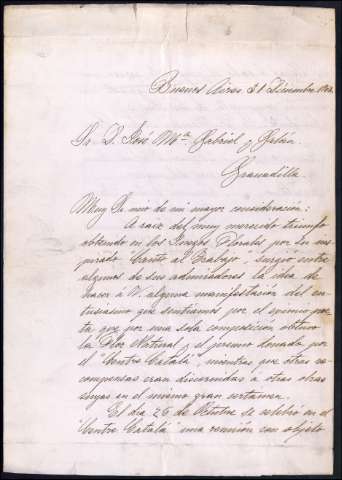 Buenos Aires, 31 Diciembre
Sr. D. José Mª. Gabriel y Galán.
Granadilla.
Muy Sr. mio de mi mayor consideración:
A raiz del muy merecido triunfo
obtenido en los Juegos Florales por su ins-
pirado Canto al Trabajo, surgió entre
algunos de sus admiradores la idea de
hacer á V. alguna manifestación del en-
tusiasmo que sentíamos por el eximio poe-
ta que por una sola composición obtuvo
la Flor Natural y el premio donado por
el "Centre Catalá", mientras que otras re-
compensas eran discernidas á otras obras
suyas en el mismo gran certamen.
El día 26 de Octubre se celebró en el
"Centre Catalá" una reunión con objeto